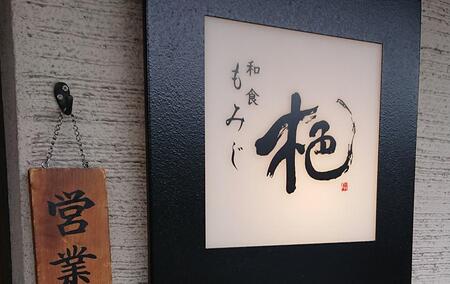 栬
和食
もみじ
営業